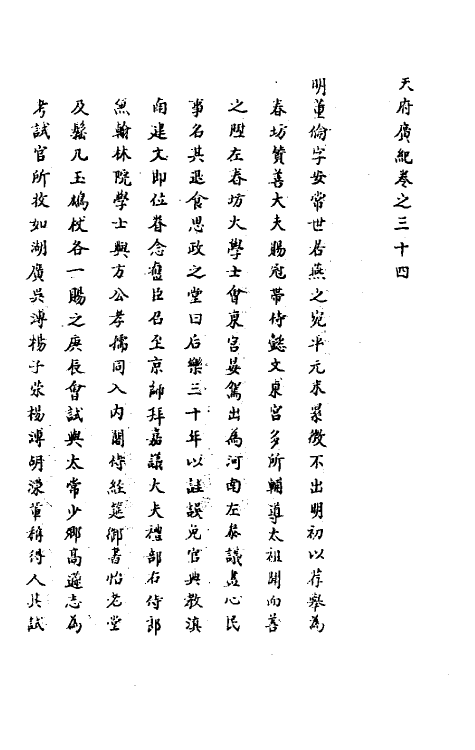 天府廣紀卷之三十四
明董倫字安常世若燕之宛平元末累徵不出明初以荐舉為
春坊贊善大夫賜冠帶侍懿文東宮多所輔導太祖聞而善
之陞左春坊大學士會東宮晏駕出為河南左叅議盡心民
事名其退食思政之堂曰后樂三十年以詿誤免官典教滇
南建文即位眷念舊臣召至京師拜嘉議大夫禮部右侍郎
兼翰林院學士與方公孝孺同入内閣侍經筵御書怡老堂
及髹几玉鳩杖各一賜之庚辰會試典太常少卿高遜志為
考試官所拔如湖廣吳溥楊子荣楊溥胡濙輩稱得人其試